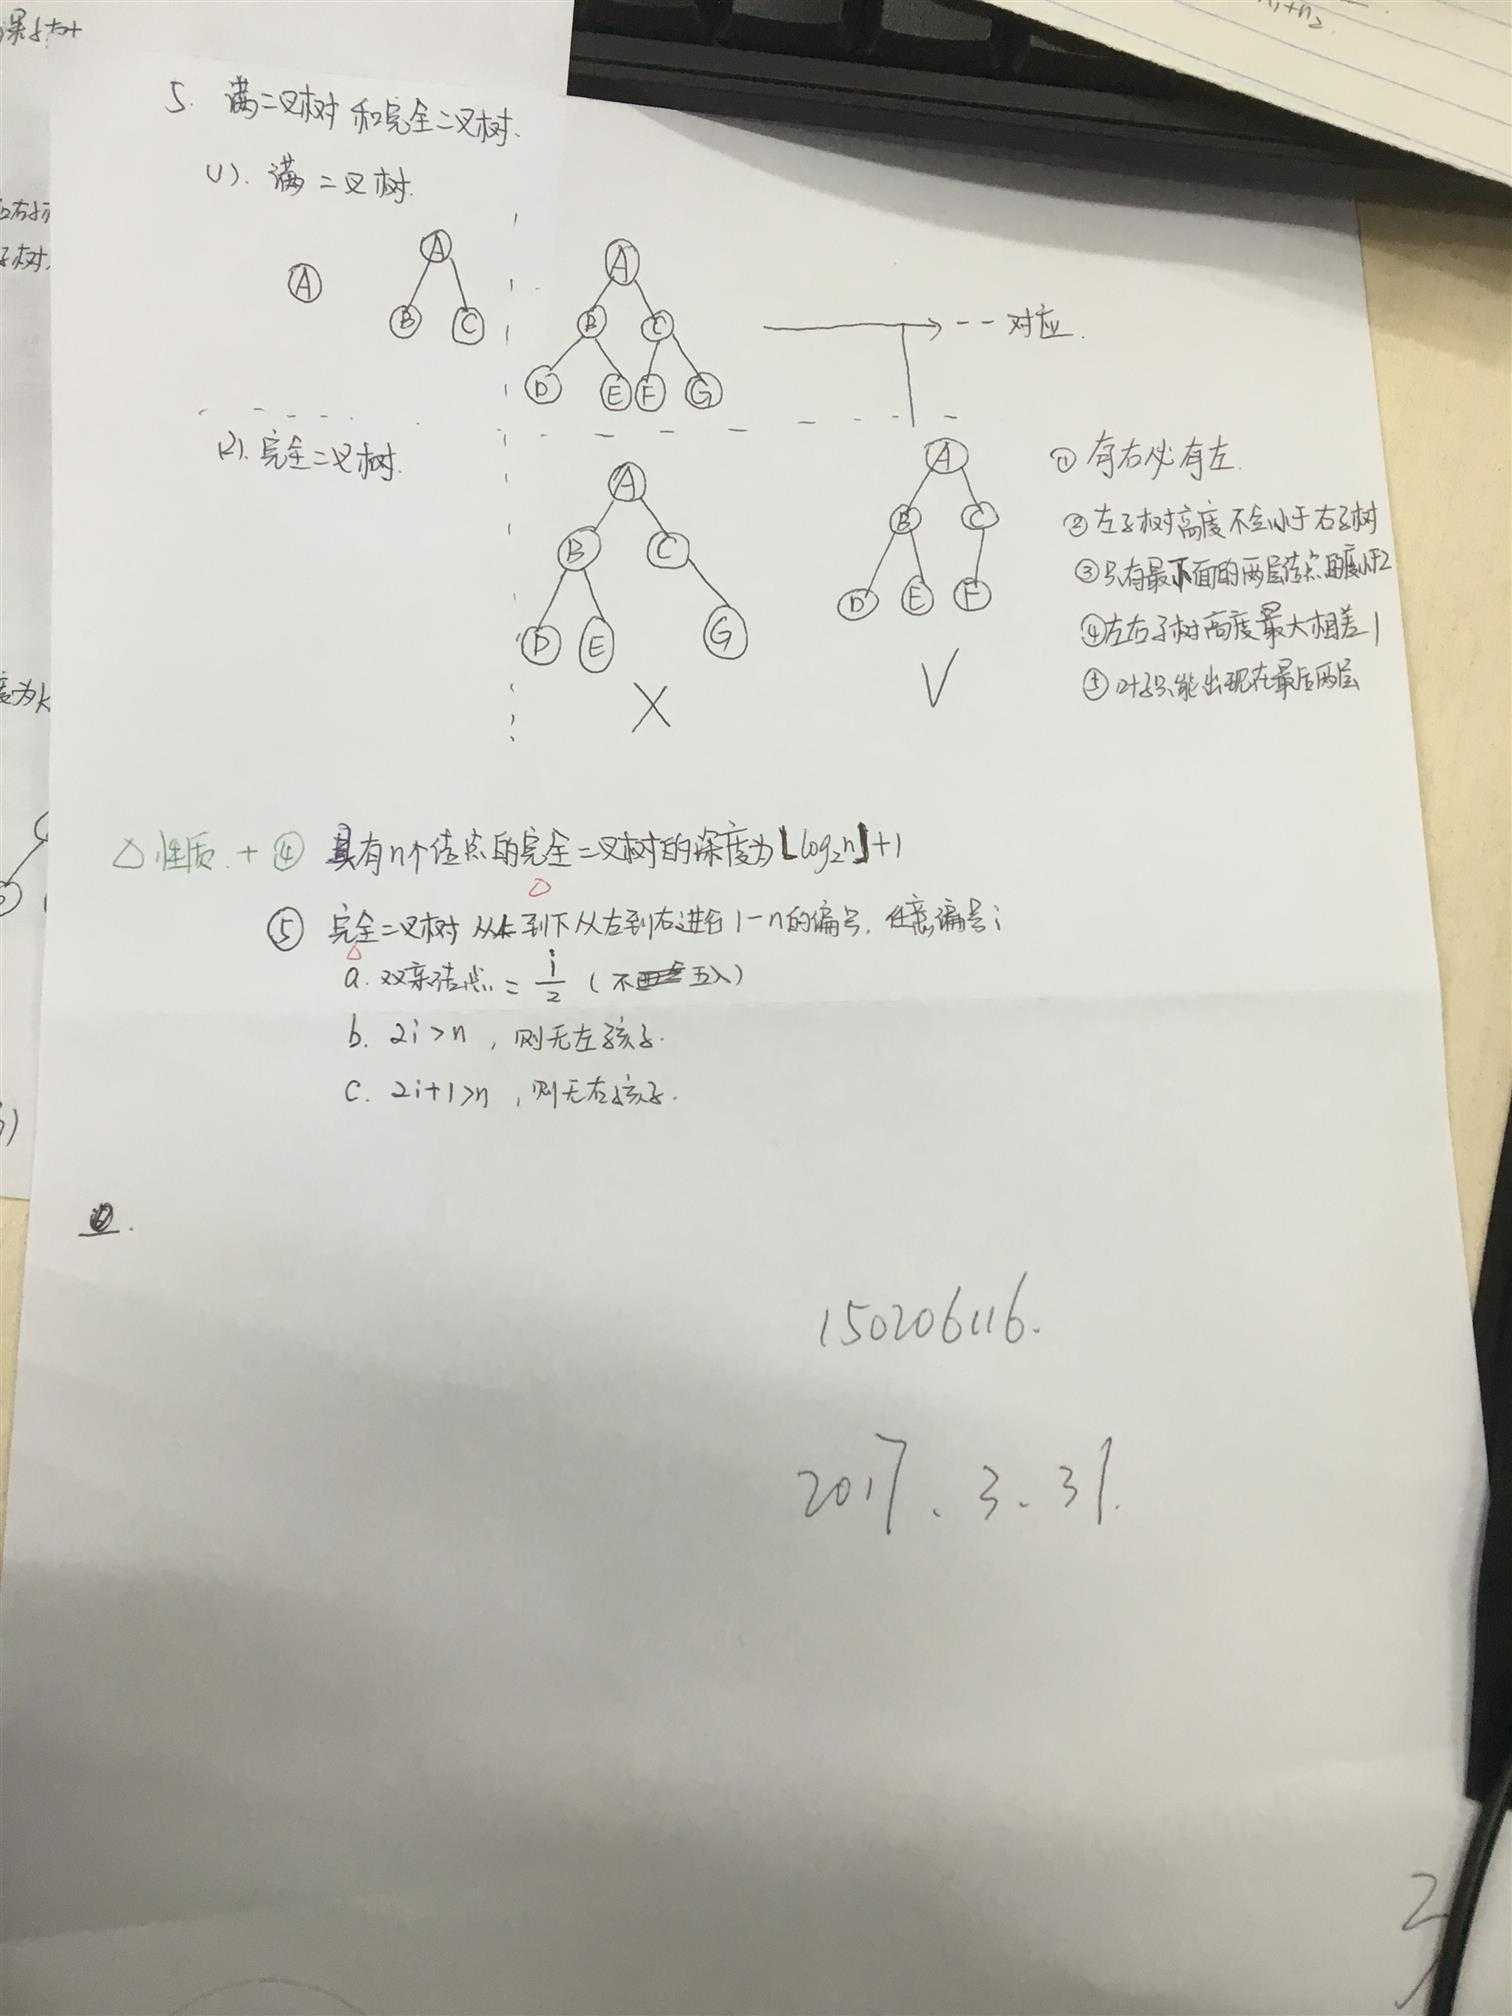 5. 满二叉树和完全二叉树.
(1). 满二叉树.
A
A
B C
A
B C
D E F G
一一对应.
(2). 完全二叉树.
A
B C
D E G
X
A
B C
D E F
√
① 有右必有左.
② 左子树高度不会小于右子树
③ 只有最下面的两层结点的度小于2
④ 左右子树高度最大相差1
⑤ 叶子只能出现在最后两层
△性质 + ④ 具有n个结点的完全二叉树的深度为⌊log₂n⌋+1
⑤ 完全二叉树从上到下从左到右进行1-n的编号, 任意编号i
a. 双亲结点 = i/2 (不 五入)
b. 2i>n, 则无左孩子.
c. 2i+1>n, 则无右孩子.
150206116.
2017.3.31.
n₁+n₂
度为k
子树.